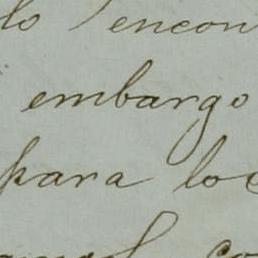 lo encon
embargo
para los